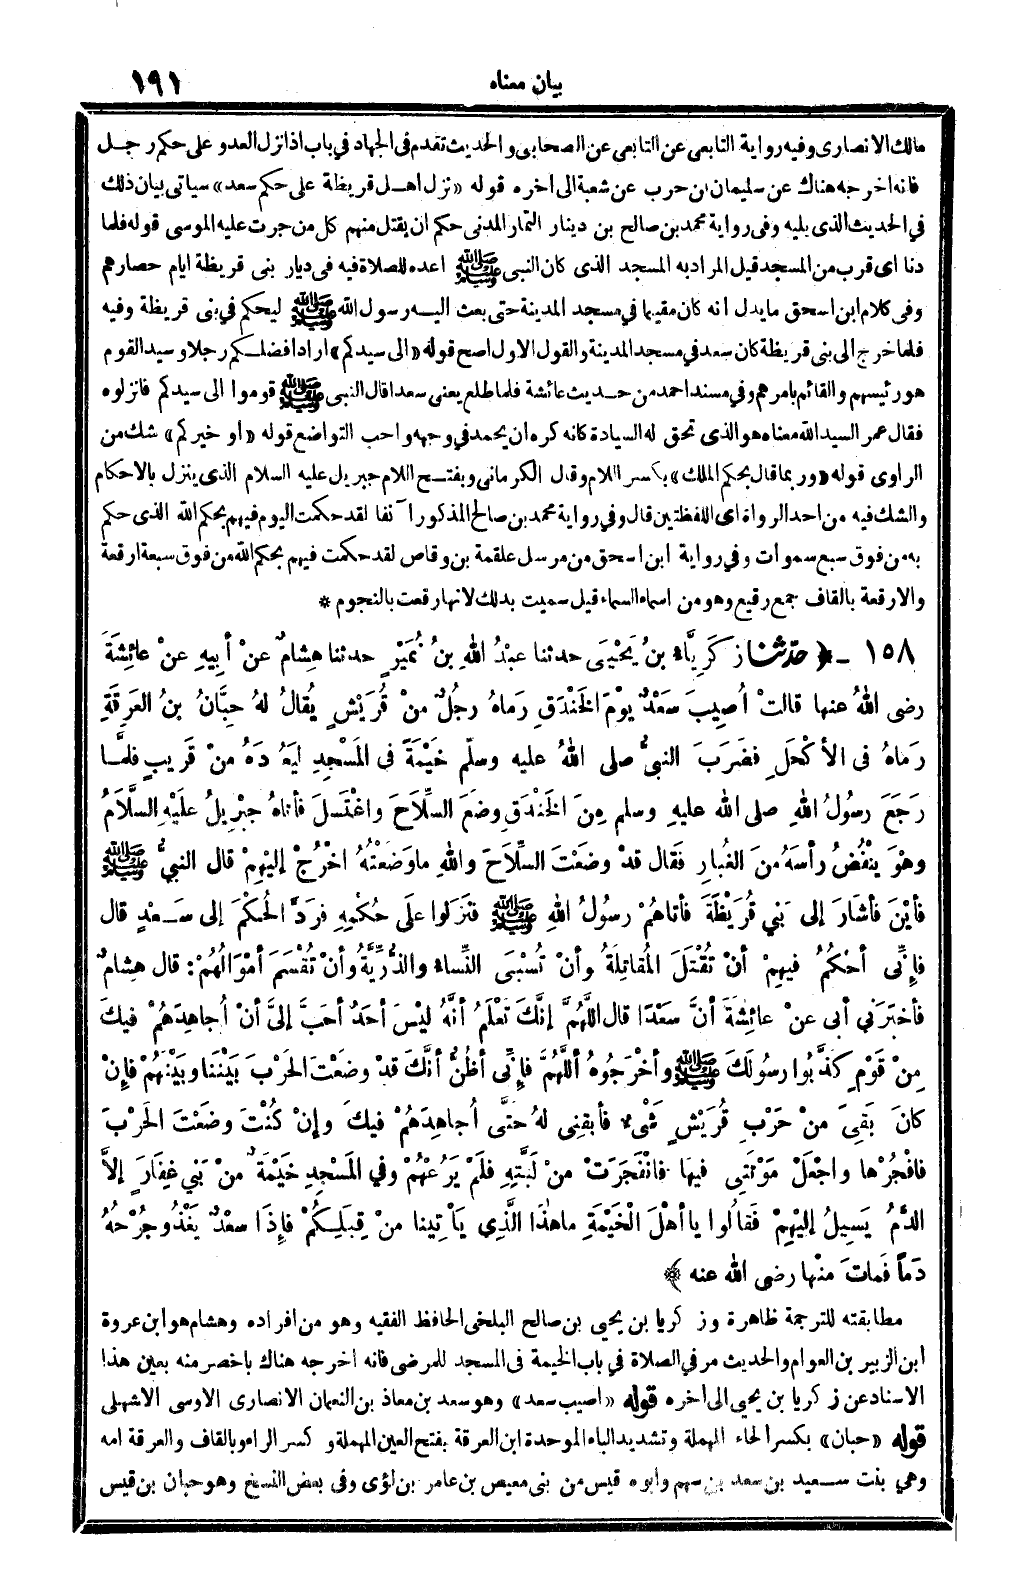 بيان معناه ١٩١
مالك الانصارى وفيه رواية التابعى عن التابعى عن الصحابى والحديث تقدم فى الجهاد في باب اذا نزل العدو على حكم رجل
فانه اخرجه هناك عن سليمان بن حرب عن شعبة الى اخره قوله «نزل اهل قريظة على حكم سعد» سياتى بيان ذلك
في الحديث الذى يليه وفى رواية محمد بن صالح بن دينار التمار المدنى حكم ان يقتل منهم كل من جرت عليه الموسى قوله فلما
دنا اى قرب من المسجد قيل المراد به المسجد الذى كان النبى ﷺ اعده للصلاة فيه فى ديار بنى قريظة ايام حصارهم
وفى كلام ابن اسحق ما يدل انه كان مقيما في مسجد المدينة حتى بعث اليه رسول الله ﷺ ليحكم في بنى قريظة وفيه
فلما خرج الى بنى قريظة كان سعد في مسجد المدينة والقول الاول اصح قوله «الى سيدكم» اراد افضلكم رجلا وسيد القوم
هو رئيسهم والقائم بامرهم وفي مسند احمد من حديث عائشة فلما طلع يعنى سعدا قال النبى ﷺ قوموا الى سيدكم فانزلوه
فقال عمر السيد الله معناه هو الذى تحق له السيادة كانه كره ان يحمد في وجهه واحب التواضع قوله «او خيركم» شك من
الراوى قوله «وربما قال بحكم الملك» بكسر اللام وقال الكرمانى وبفتح اللام جبريل عليه السلام الذى ينزل بالاحكام
والشك فيه من احد الرواة اى اللفظتين قال وفي رواية محمد بن صالح المذكور آنفا لقد حكمت اليوم فيهم بحكم الله الذى حكم
به من فوق سبع سموات وفي رواية ابن اسحق من مرسل علقمة بن وقاص لقد حكمت فيهم بحكم الله من فوق سبعة ارقعة
والارقعة بالقاف جمع رقيع وهو من اسماء السماء قيل سميت بذلك لانها رقعت بالنجوم *
١٥٨ - ﴿ حدّثنا زكَرِيَّاءُ بنُ يَحْيَى حدثنا عبْدُ اللهِ بنُ نُمَيْرٍ حدثنا هِشامٌ عنْ أبِيهِ عنْ عائِشَةَ
رضى اللهُ عنها قالتْ أُصِيبَ سَعْدٌ يوْمَ الخَنْدَقِ رَماهُ رجُلٌ منْ قُرَيْشٍ يُقالُ لهُ حِبَّانُ بنُ العَرِقَةِ
رَماهُ فى الأكْحَلِ فضَرَبَ النبىُّ صلى اللهُ عليه وسلّم خَيْمَةً فى المَسْجِدِ لِيَعُودَهُ منْ قَرِيبٍ فلمَّا
رَجَعَ رسولُ اللهِ صلى الله عليهِ وسلم مِنَ الخَنْدَقِ وضَعَ السِّلاحَ واغْتَسَلَ فأتاهُ جبْرِيلُ علَيْهِ السَّلاَمُ
وهْوَ ينْفُضُ رأسَهُ منَ الغُبارِ فَقال قدْ وضَعْتَ السِّلاَحَ واللهِ ماوَضَعْتُهُ اخْرُجْ إليْهِمْ قال النبيُّ ﷺ
فأيْنَ فأشَارَ إلى بَنِي قُرَيْظَةَ فأتاهُمْ رسولُ اللهِ ﷺ فنَزَلوا علَى حُكْمِهِ فرَدَّ الحُكْمَ إلى سَعْدٍ قال
فإنِّى أحْكُمُ فيهِمْ أنْ تُقْتَلَ المُقاتِلَةُ وأنْ تُسْبَى النِّساءُ والذُّرِّيَّةُ وأنْ تُقْسَمَ أمْوَالُهُمْ: قال هِشامٌ
فأخبَرَنِي أبى عنْ عائِشَةَ أنَّ سَعْدًا قال اللَّهُمَّ إنَّكَ تَعْلَمُ أنَّهُ ليْسَ أحَدٌ أحَبَّ إلىَّ أنْ أُجاهِدَهُمْ فيكَ
مِنْ قَوْمٍ كَذَّبُوا رسولَكَ ﷺ وأخْرَجُوهُ أللَّهُمَّ فإنِّى أظُنُّ أنَّكَ قدْ وضَعْتَ الحَرْبَ بَيْنَنا وبَيْنَهُمْ فإنْ
كانَ بَقِىَ منْ حَرْبِ قُرَيْشٍ شَىْءٌ فأبْقِنِى لهُ حتَّى أُجاهِدَهُمْ فيكَ وإنْ كُنْتَ وضَعْتَ الحَرْبَ
فافْجُرْها واجْعَلْ مَوْتَتِى فيها فانْفَجَرَتْ منْ لَبَّتِهِ فلَمْ يَرُعْهُمْ وفي المَسْجِدِ خَيْمَةٌ منْ بَنِي غِفَارٍ إلاَّ
الدَّمُ يَسِيلُ إليْهِمْ فَقالُوا ياأهْلَ الْخَيْمَةِ ماهٰذَا الَّذِى يَأتِينا منْ قِبَلِكُمْ فإذَا سعْدٌ يَغْذُو جُرْحُهُ
دَماً فَماتَ منْها رضى الله عنه ﴾
مطابقته للترجمة ظاهرة وزكريا بن يحيى بن صالح البلخى الحافظ الفقيه وهو من افراده وهشام هو ابن عروة
ابن الزبير بن العوام والحديث مر في الصلاة في باب الخيمة فى المسجد للمرضى فانه اخرجه هناك باخصر منه بعين هذا
الاسناد عن زكريا بن يحيى الى اخره قوله «اصيب سعد» وهو سعد بن معاذ بن النعمان الانصارى الاوسى الاشهلى
قوله «حبان» بكسر الحاء المهملة وتشديد الباء الموحدة ابن العرقة بفتح العين المهملة وكسر الراء وبالقاف والعرقة امه
وهي بنت سعيد بن سعد بن سهم وأبوه قيس من بنى معيص بن عامر بن لؤى وفى بعض النسخ وهو حبان بن قيس